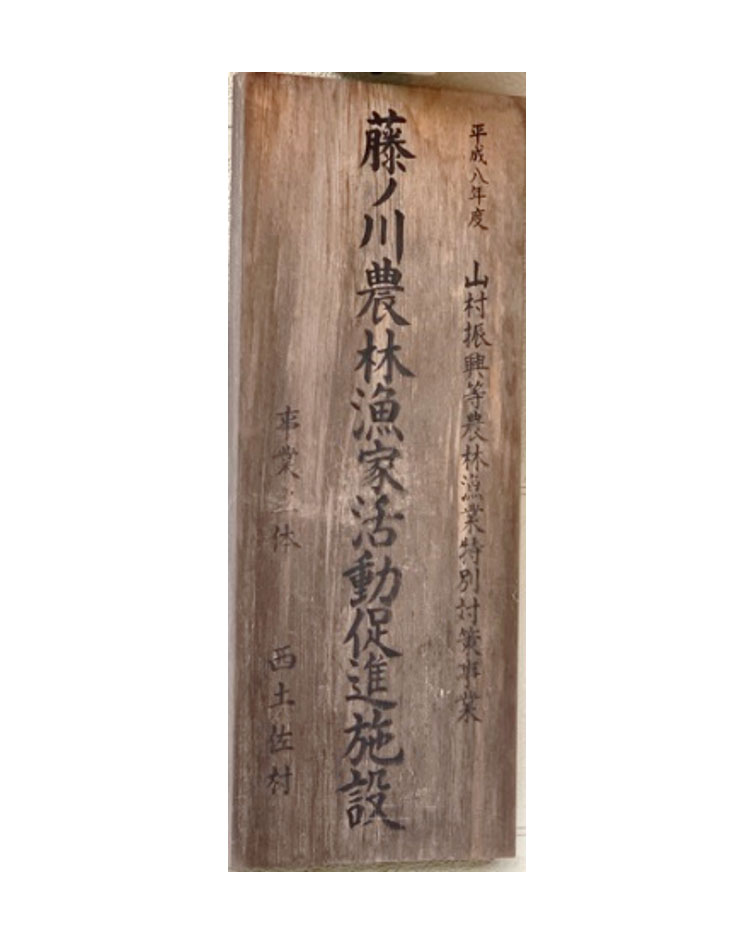 平成八年度 山村振興等農林漁業特別対策事業
藤ノ川農林漁家活動促進施設
事業主体 西土佐村